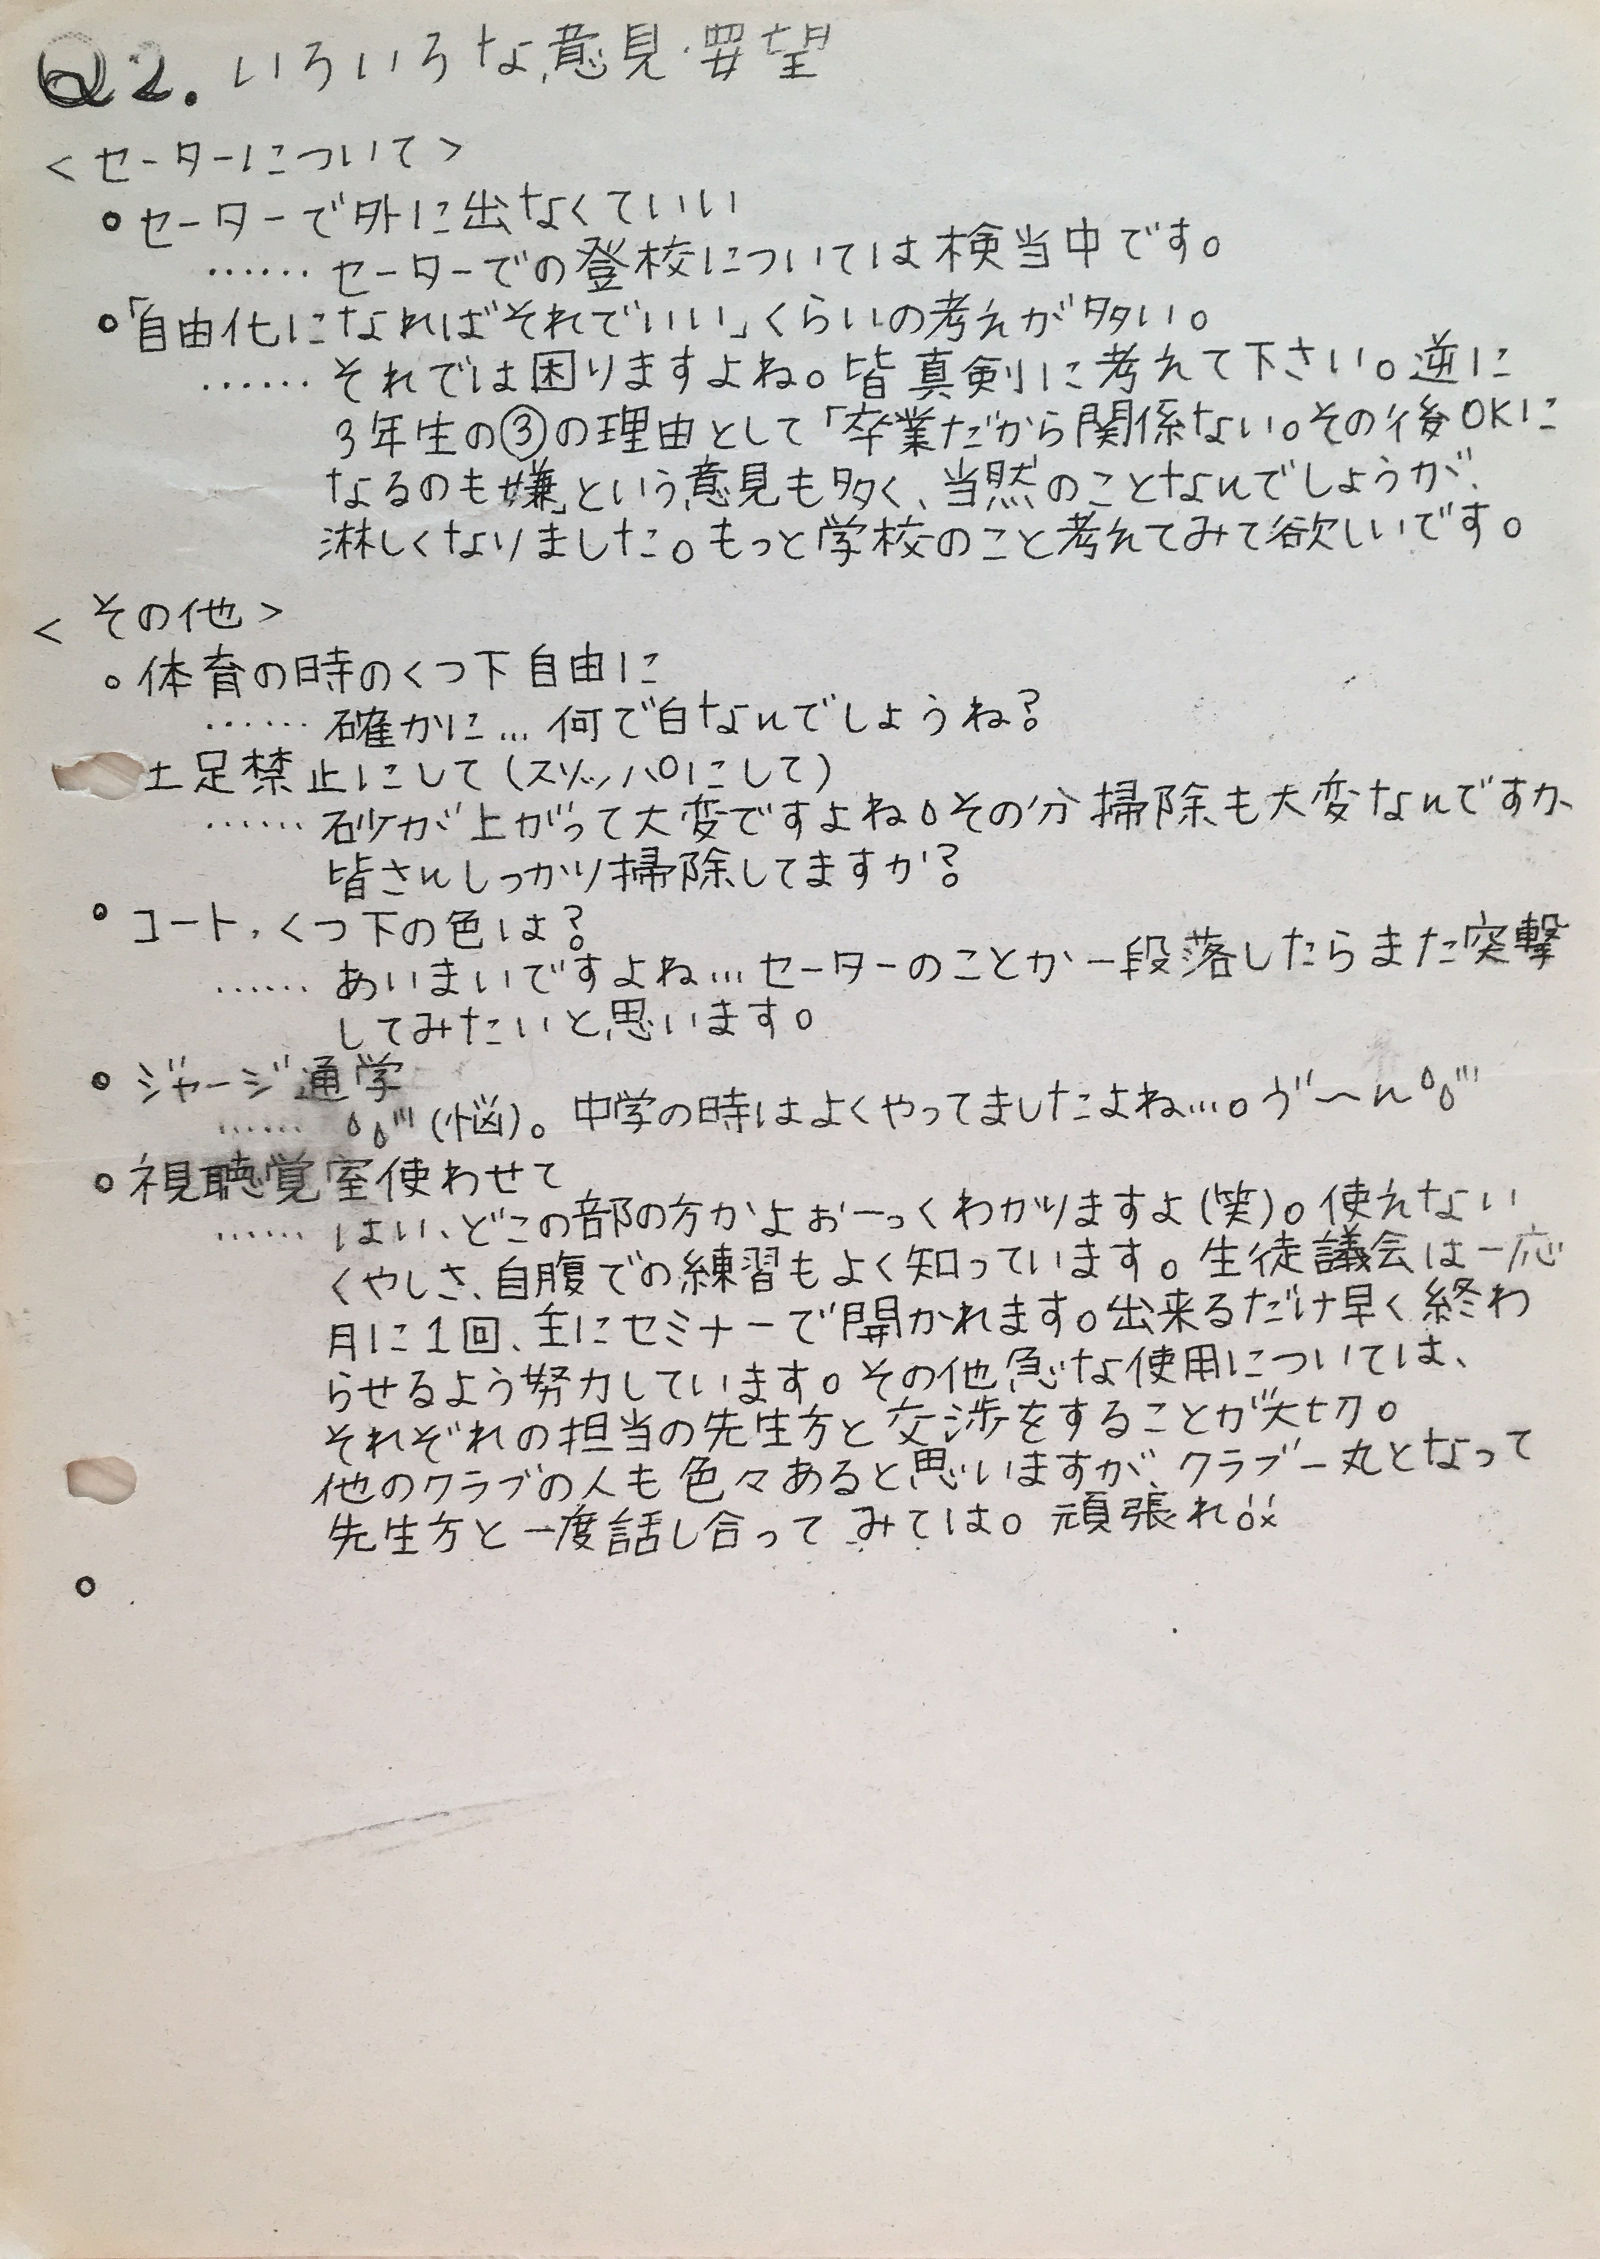 Q2. いろいろな意見・要望
＜セーターについて＞
○セーターで外に出なくていい
……セーターでの登校については検当中です。
○「自由化になればそれでいい」くらいの考えが多い。
……それでは困りますよね。皆真剣に考えて下さい。逆に
3年生の③の理由として「卒業だから関係ない。その後OKに
なるのも嫌」という意見も多く、当然のことなんでしょうが、
淋しくなりました。もっと学校のこと考えてみて欲しいです。
＜その他＞
○体育の時のくつ下自由に
……確かに…何で白なんでしょうね?
土足禁止にして(スリッパにして)
……砂が上がって大変ですよね。その分掃除も大変なんですが、
皆さんしっかり掃除してますか?
○コート, くつ下の色は?
……あいまいですよね…セーターのことが一段落したらまた突撃
してみたいと思います。
○ジャージ通学
……(悩)。中学の時はよくやってましたよね…。ゔ〜ん
○視聴覚室使わせて
……はい、どこの部の方かよぉーっくわかりますよ(笑)。使えない
くやしさ、自腹での練習もよく知っています。生徒議会は一応
月に1回、主にセミナーで開かれます。出来るだけ早く終わ
らせるよう努力しています。その他急な使用については、
それぞれの担当の先生方と交渉をすることが大切。
他のクラブの人も色々あると思いますが、クラブ一丸となって
先生方と一度話し合ってみては。頑張れ
○